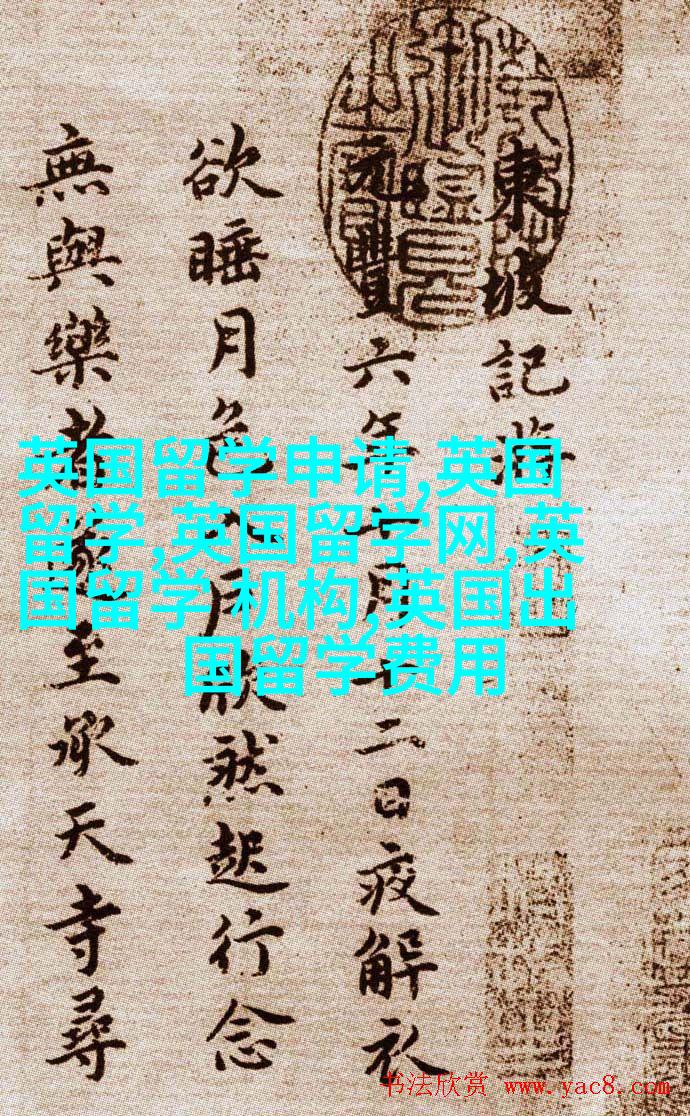 東坡記游
元豐六年十月十二日夜解衣
欲睡月色入户欣然起行念
無與樂者遂至承天寺尋
英国留学申请,英国
留学,英国留学网,英
国留学 机构,英国出
国留学费用
书法欣赏 www.yac8.com